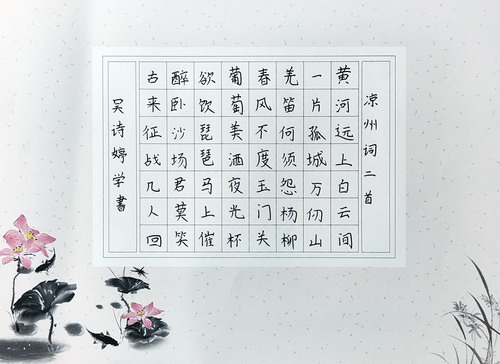 凉州词二首
黄河远上白云间
一片孤城万仞山
羌笛何须怨杨柳
春风不度玉门关
葡萄美酒夜光杯
欲饮琵琶马上催
醉卧沙场君莫笑
古来征战几人回
吴诗婷学書